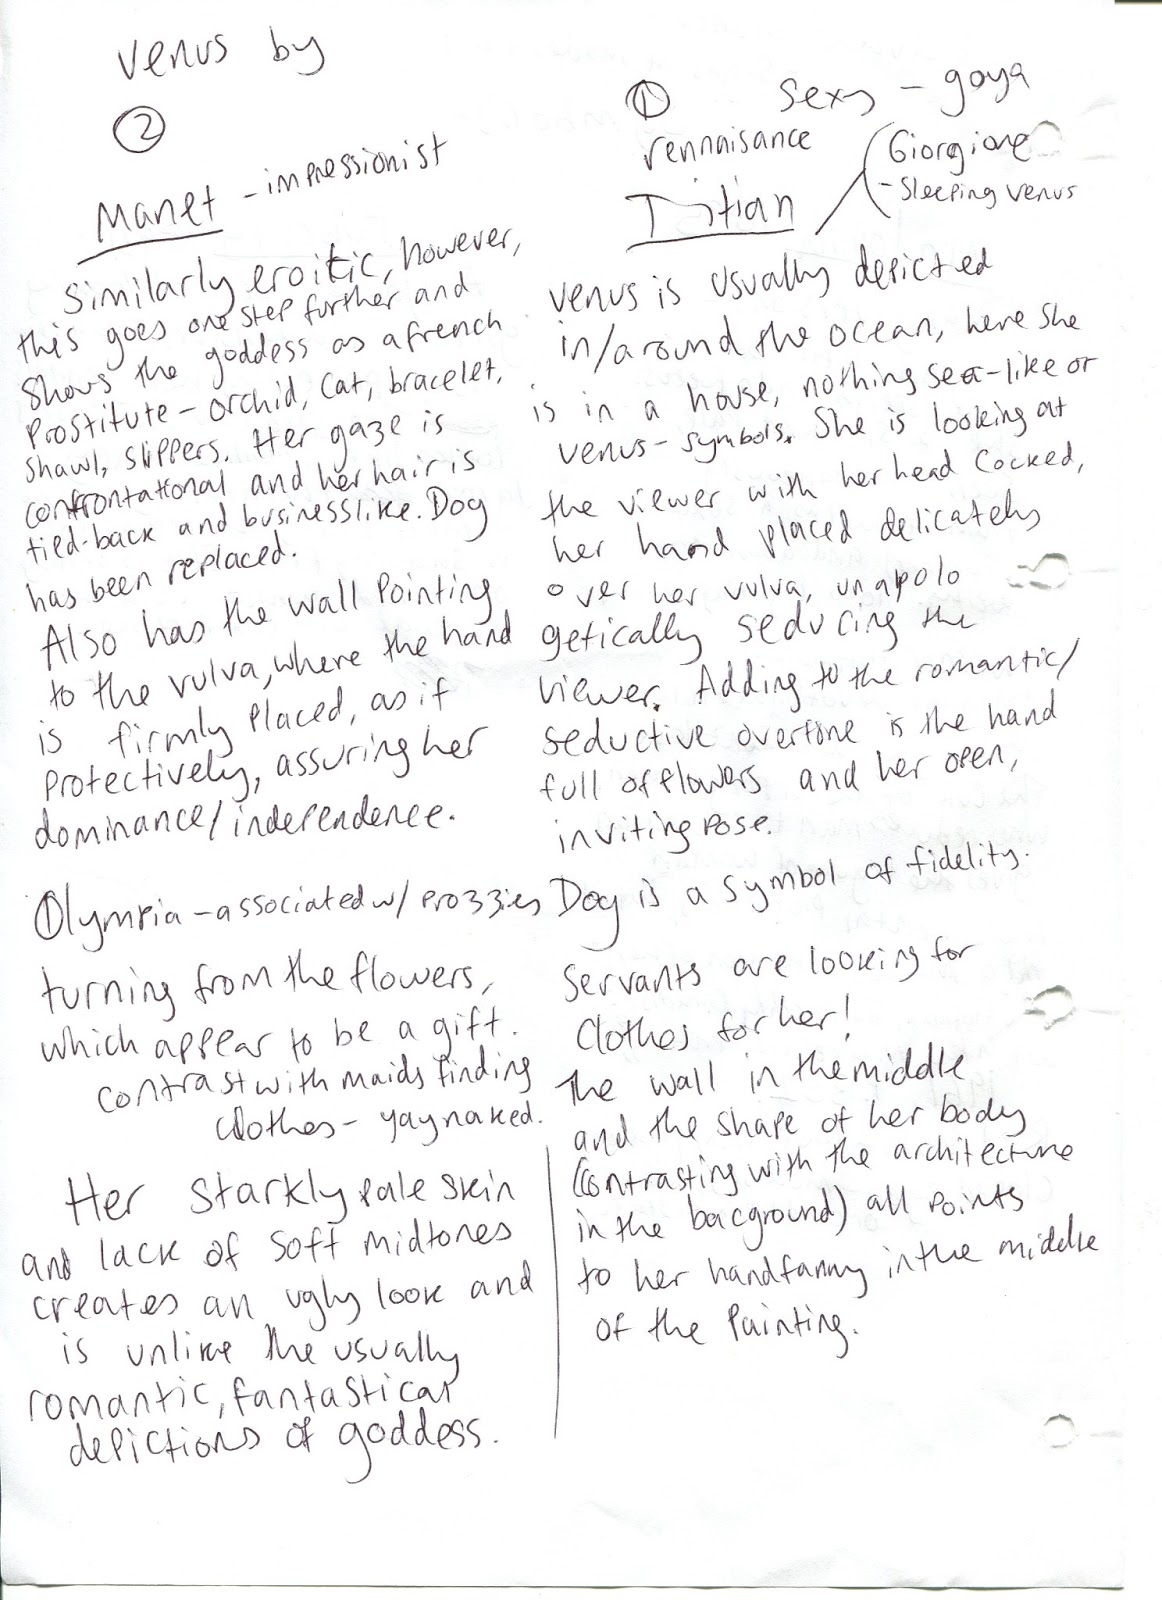 venus by
②
Manet - impressionist
Similarly eroitic, however,
this goes one step further and
shows the goddess as a french
prostitute - orchid, cat, bracelet,
shawl, slippers. Her gaze is
confrontational and her hair is
tied-back and businesslike. Dog
has been replaced.
Also has the wall pointing
to the vulva, where the hand
is firmly placed, as if
protectively, assuring her
dominance/independence.
Olympia - associated w/ prozzies
turning from the flowers,
which appear to be a gift.
contrast with maids finding
clothes - yay naked.
Her starkly pale skin
and lack of soft midtones
creates an ugly look and
is unlike the usually
romantic, fantastical
depictions of goddess.
① sexy - goya
rennaisance
Titian
Giorgione
- sleeping venus
venus is usually depicted
in/around the ocean, here she
is in a house, nothing sea-like or
venus-symbols. She is looking at
the viewer with her head cocked,
her hand placed delicately
over her vulva, unapolo
getically seducing the
viewer. Adding to the romantic/
seductive overtone is the hand
full of flowers and her open,
inviting pose.
Dog is a symbol of fidelity.
Servants are looking for
clothes for her!
The wall in the middle
and the shape of her body
(contrasting with the architecture
in the bacground) all points
to her handfanny in the middle
of the painting.